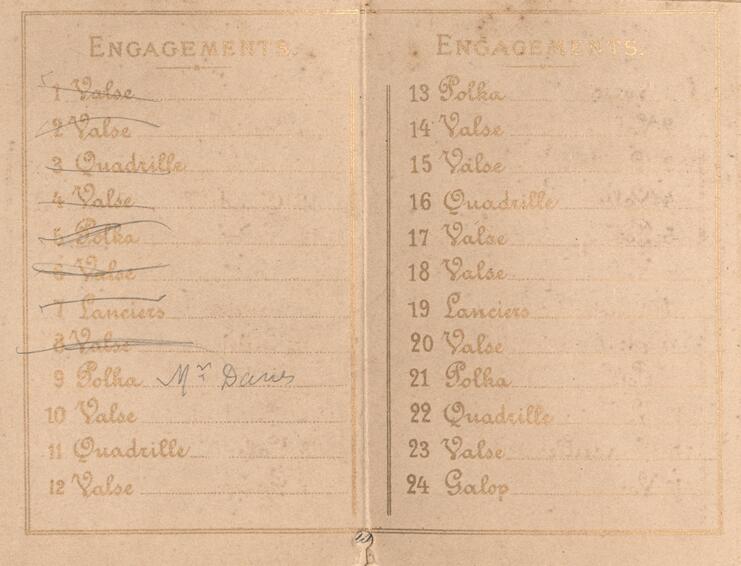 ENGAGEMENTS.
1 Valse
2 Valse
3 Quadrille
4 Valse
5 Polka
6 Valse
7 Lanciers
8 Valse
9 Polka Mr Davies
10 Valse
11 Quadrille
12 Valse
ENGAGEMENTS.
13 Polka
14 Valse
15 Valse
16 Quadrille
17 Valse
18 Valse
19 Lanciers
20 Valse
21 Polka
22 Quadrille
23 Valse
24 Galop